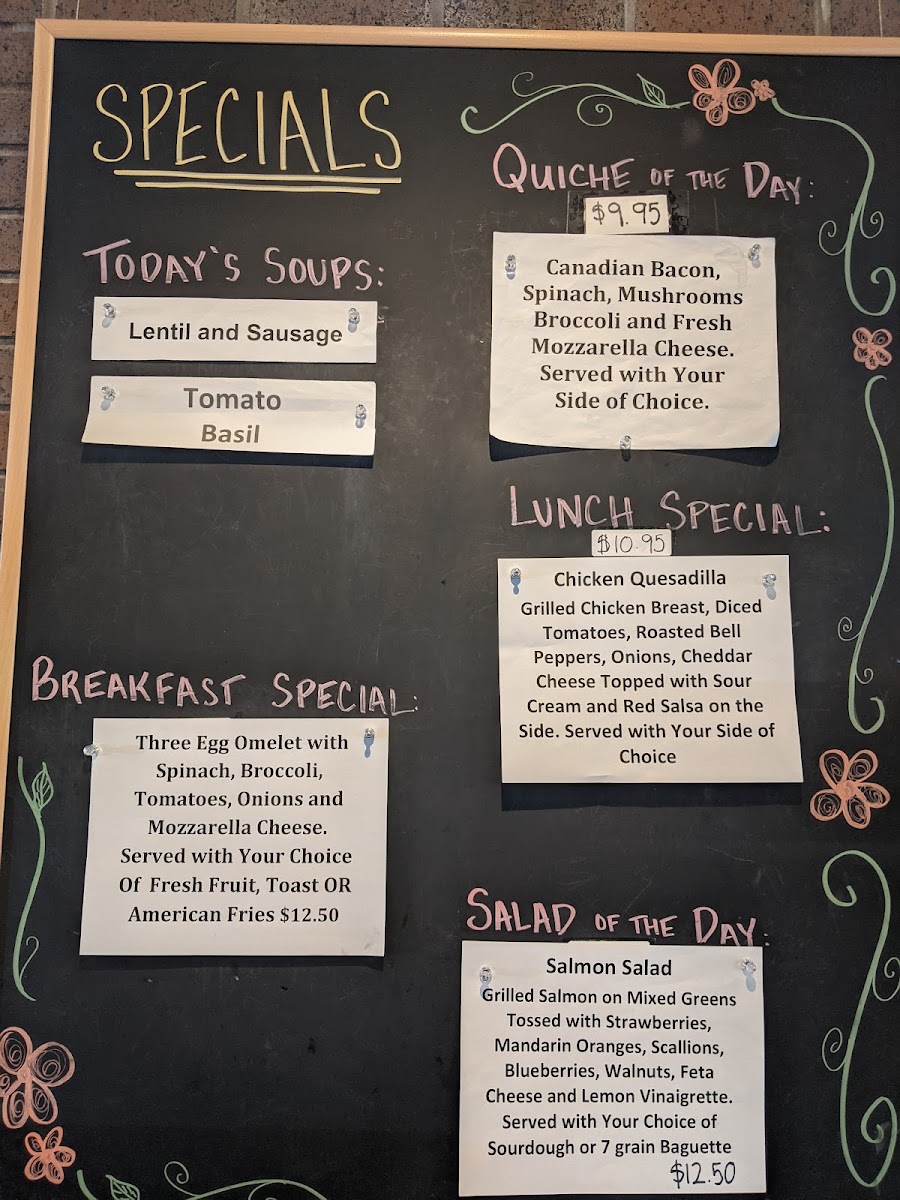 SPECIALS
TODAY'S SOUPS:
Lentil and Sausage
Tomato
Basil
BREAKFAST SPECIAL:
Three Egg Omelet with
Spinach, Broccoli,
Tomatoes, Onions and
Mozzarella Cheese.
Served with Your Choice
Of Fresh Fruit, Toast OR
American Fries $12.50
QUICHE OF THE DAY:
$9.95
Canadian Bacon,
Spinach, Mushrooms
Broccoli and Fresh
Mozzarella Cheese.
Served with Your
Side of Choice.
LUNCH SPECIAL:
$10.95
Chicken Quesadilla
Grilled Chicken Breast, Diced
Tomatoes, Roasted Bell
Peppers, Onions, Cheddar
Cheese Topped with Sour
Cream and Red Salsa on the
Side. Served with Your Side of
Choice
SALAD OF THE DAY:
Salmon Salad
Grilled Salmon on Mixed Greens
Tossed with Strawberries,
Mandarin Oranges, Scallions,
Blueberries, Walnuts, Feta
Cheese and Lemon Vinaigrette.
Served with Your Choice of
Sourdough or 7 grain Baguette
$12.50